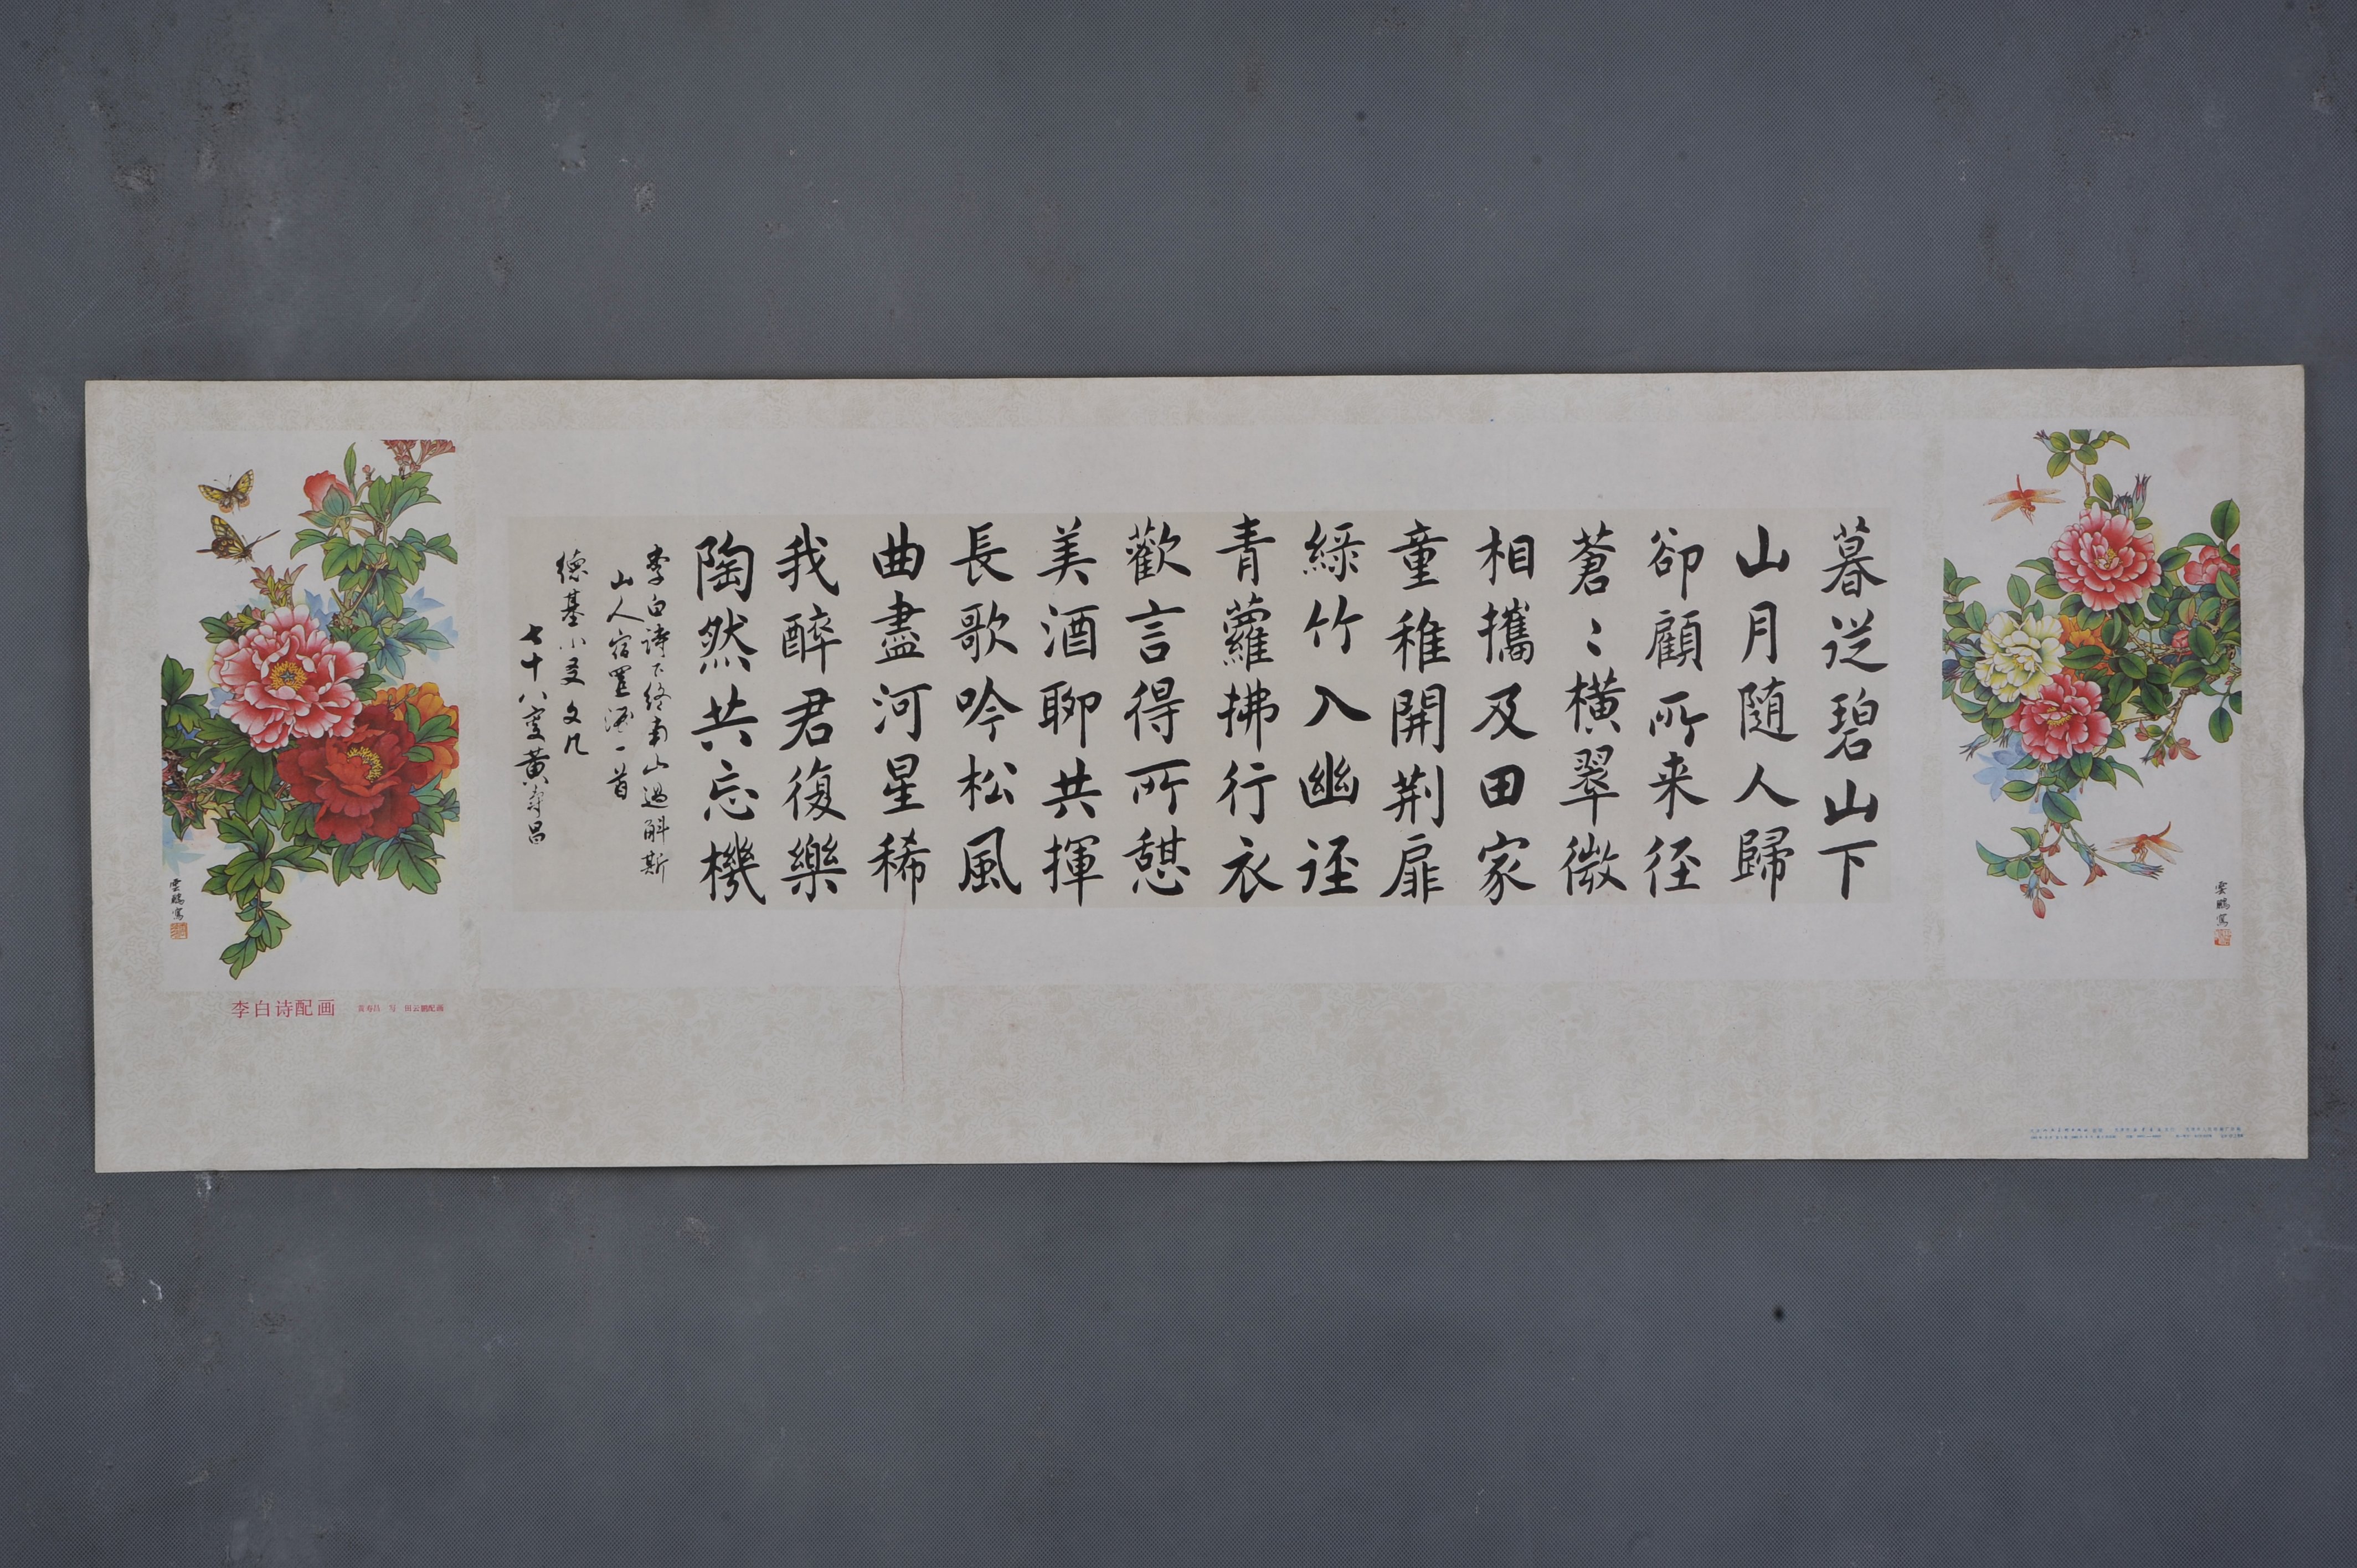 暮从碧山下
山月随人歸
卻顧所来径
蒼〻橫翠微
相攜及田家
童稚開荆扉
綠竹入幽迳
青蘿拂行衣
歡言得所憩
美酒聊共揮
長歌吟松風
曲盡河星稀
我醉君復樂
陶然共忘機
李白诗下终南山過斛斯
山人宿置酒一首
德基小友文几
七十八叟黄寿昌
雲鵬寫
雲鵬寫
李白诗配画 黄寿昌 写 田云鹏配画